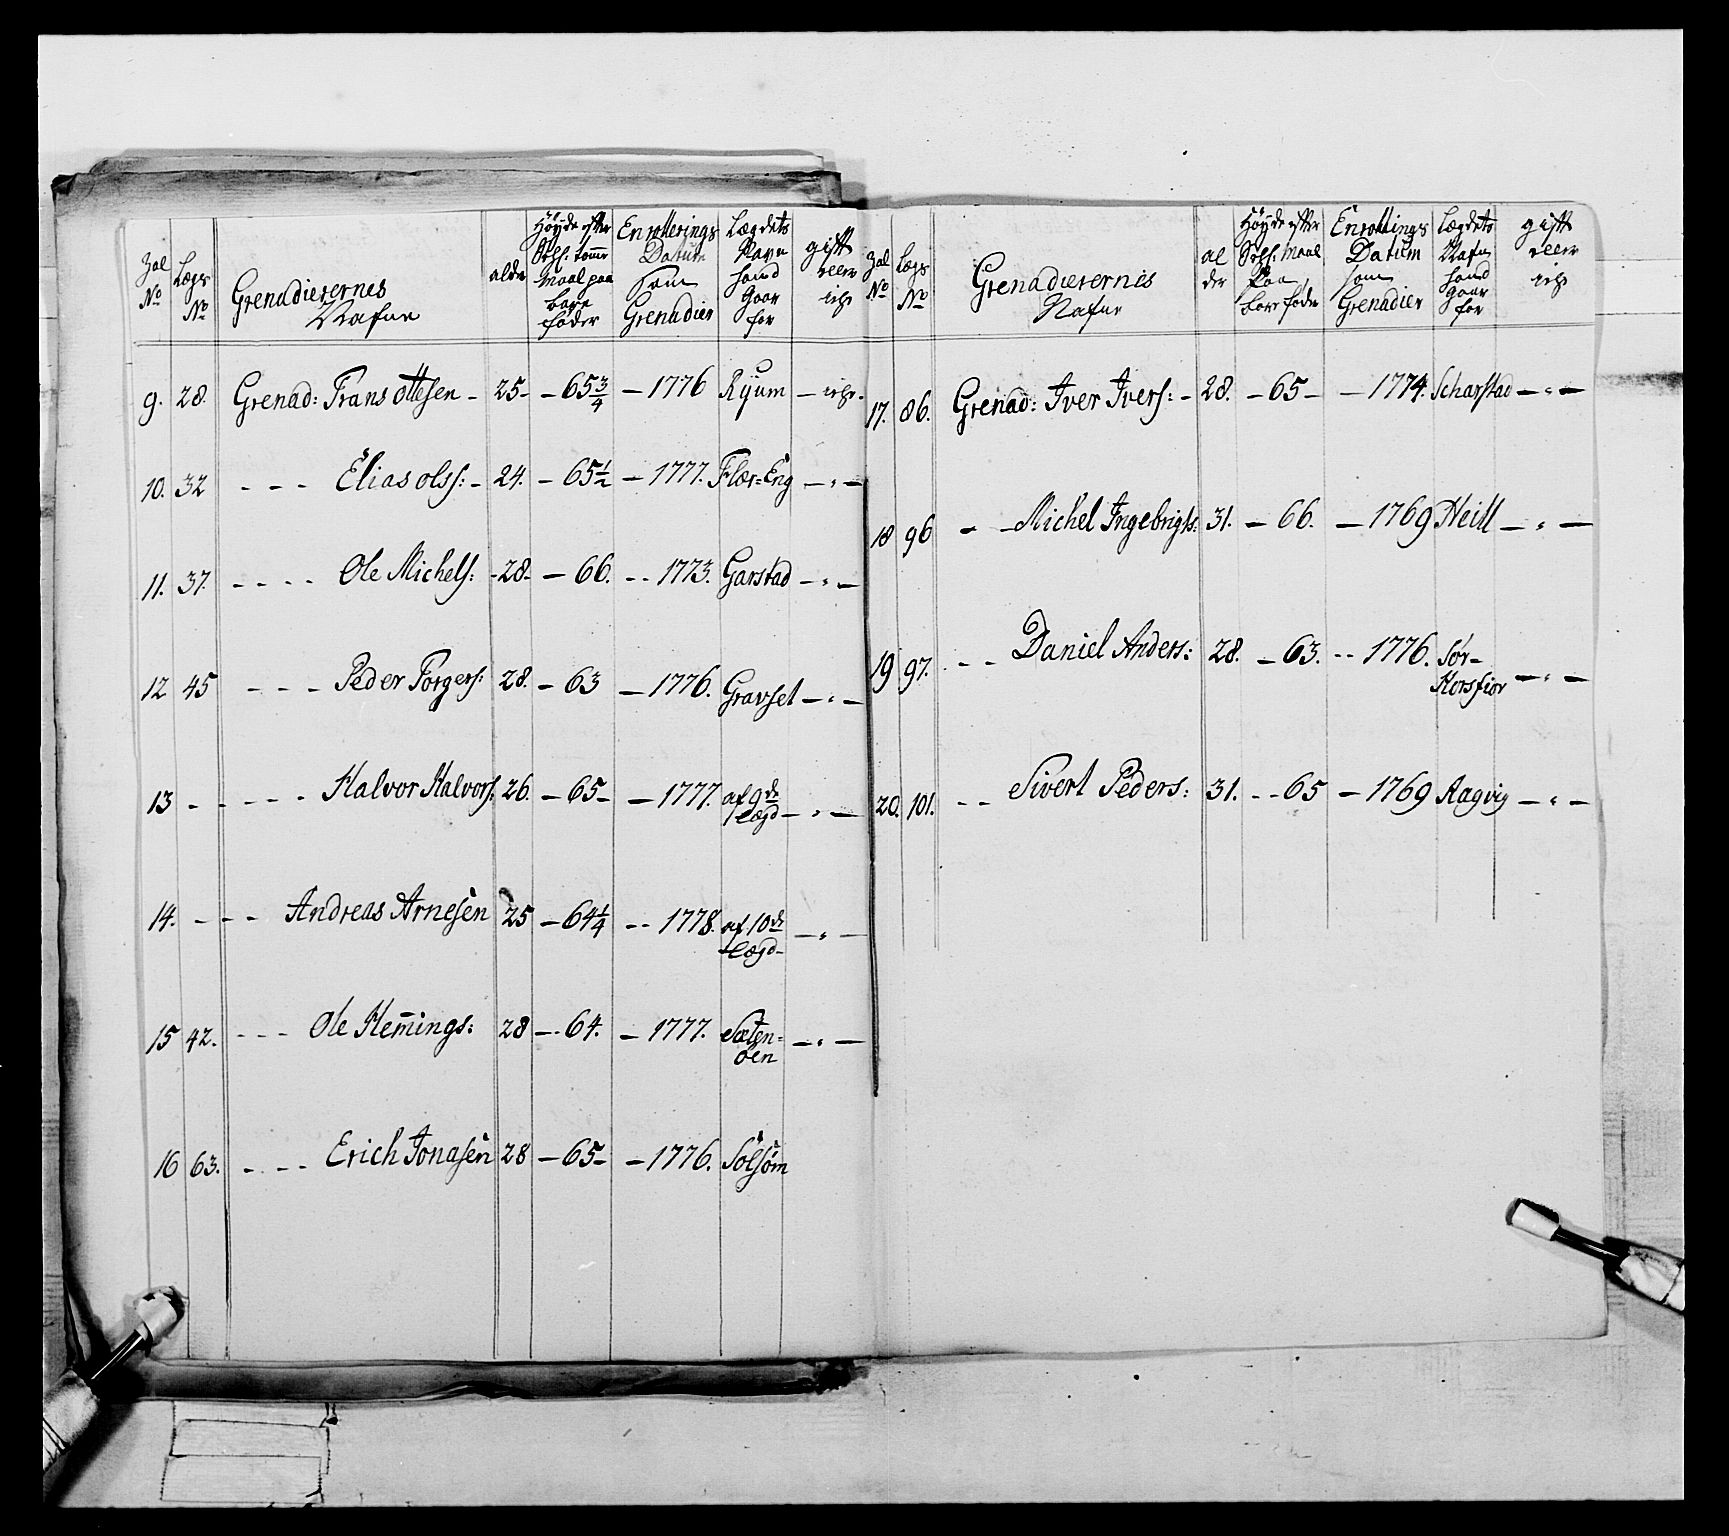 Zal No | Lægs No | Grenadierernes Nafne | alder | Höyde efter Maal paa bare föder | Enrollerings Datum som Grenadier | Lægdets Navn hand Gaar for | gift eller ichs
9. | 28. | Grenad: Frans Ottesen - | 25- | - 65 3/4 | - 1776 | Ryum | - ichs.
10. | 32 | - - - Elias Olss: - | 24. | - 65 1/2 | - 1777. | Flær=Eng | - " -
11. | 37. | - - - - Ole Michels: | -28- | - 66. | - - 1773. | Garstad | - " -
12 | 45 | - - - - Peder Torgers: | 28. | - 63 | - 1776. | Gravset | - " -
13 | - - - - - Halvor Halvors: | 26. | - 65- | - 1777. | af 9de Lægd | - " -
14. | - - - Andreas Arnesen | 25 | - 64 1/4 | - - 1778. | af 10de Lægd- | - " -
15 | 42. | - - - Ole Hem̄ings: | 28 | - 64. | - 1777. | Sæten=öen | - " -
16 | 63. | - - - Erich Jonasen | 28 | - 65- | - 1776. | Solsöm
Zal No | Lægs No | Grenadierernis Nafne | al der | Höyde efter Maal Paa bare föder | Enrollings Datum som Grenadier | Lægdets Nafn hand gaar for | gift eller ichs
17. | 86. | Grenad: Iver Ivers: - | 28. | - 65- | - 1774. | Scharstad | - " -
18 | 96 | - - Michel Ingebrigts: | 31. | - 66. | - 1769 | Heill | - " -
19 | 97. | - - Daniel Anders: | 28. | - 63. | - - 1776. | Sör-Korsfior | - " -
20. | 101. | - - Sivert Peders: | 31. | - - 65 | - 1769 | Aagvig | - " -